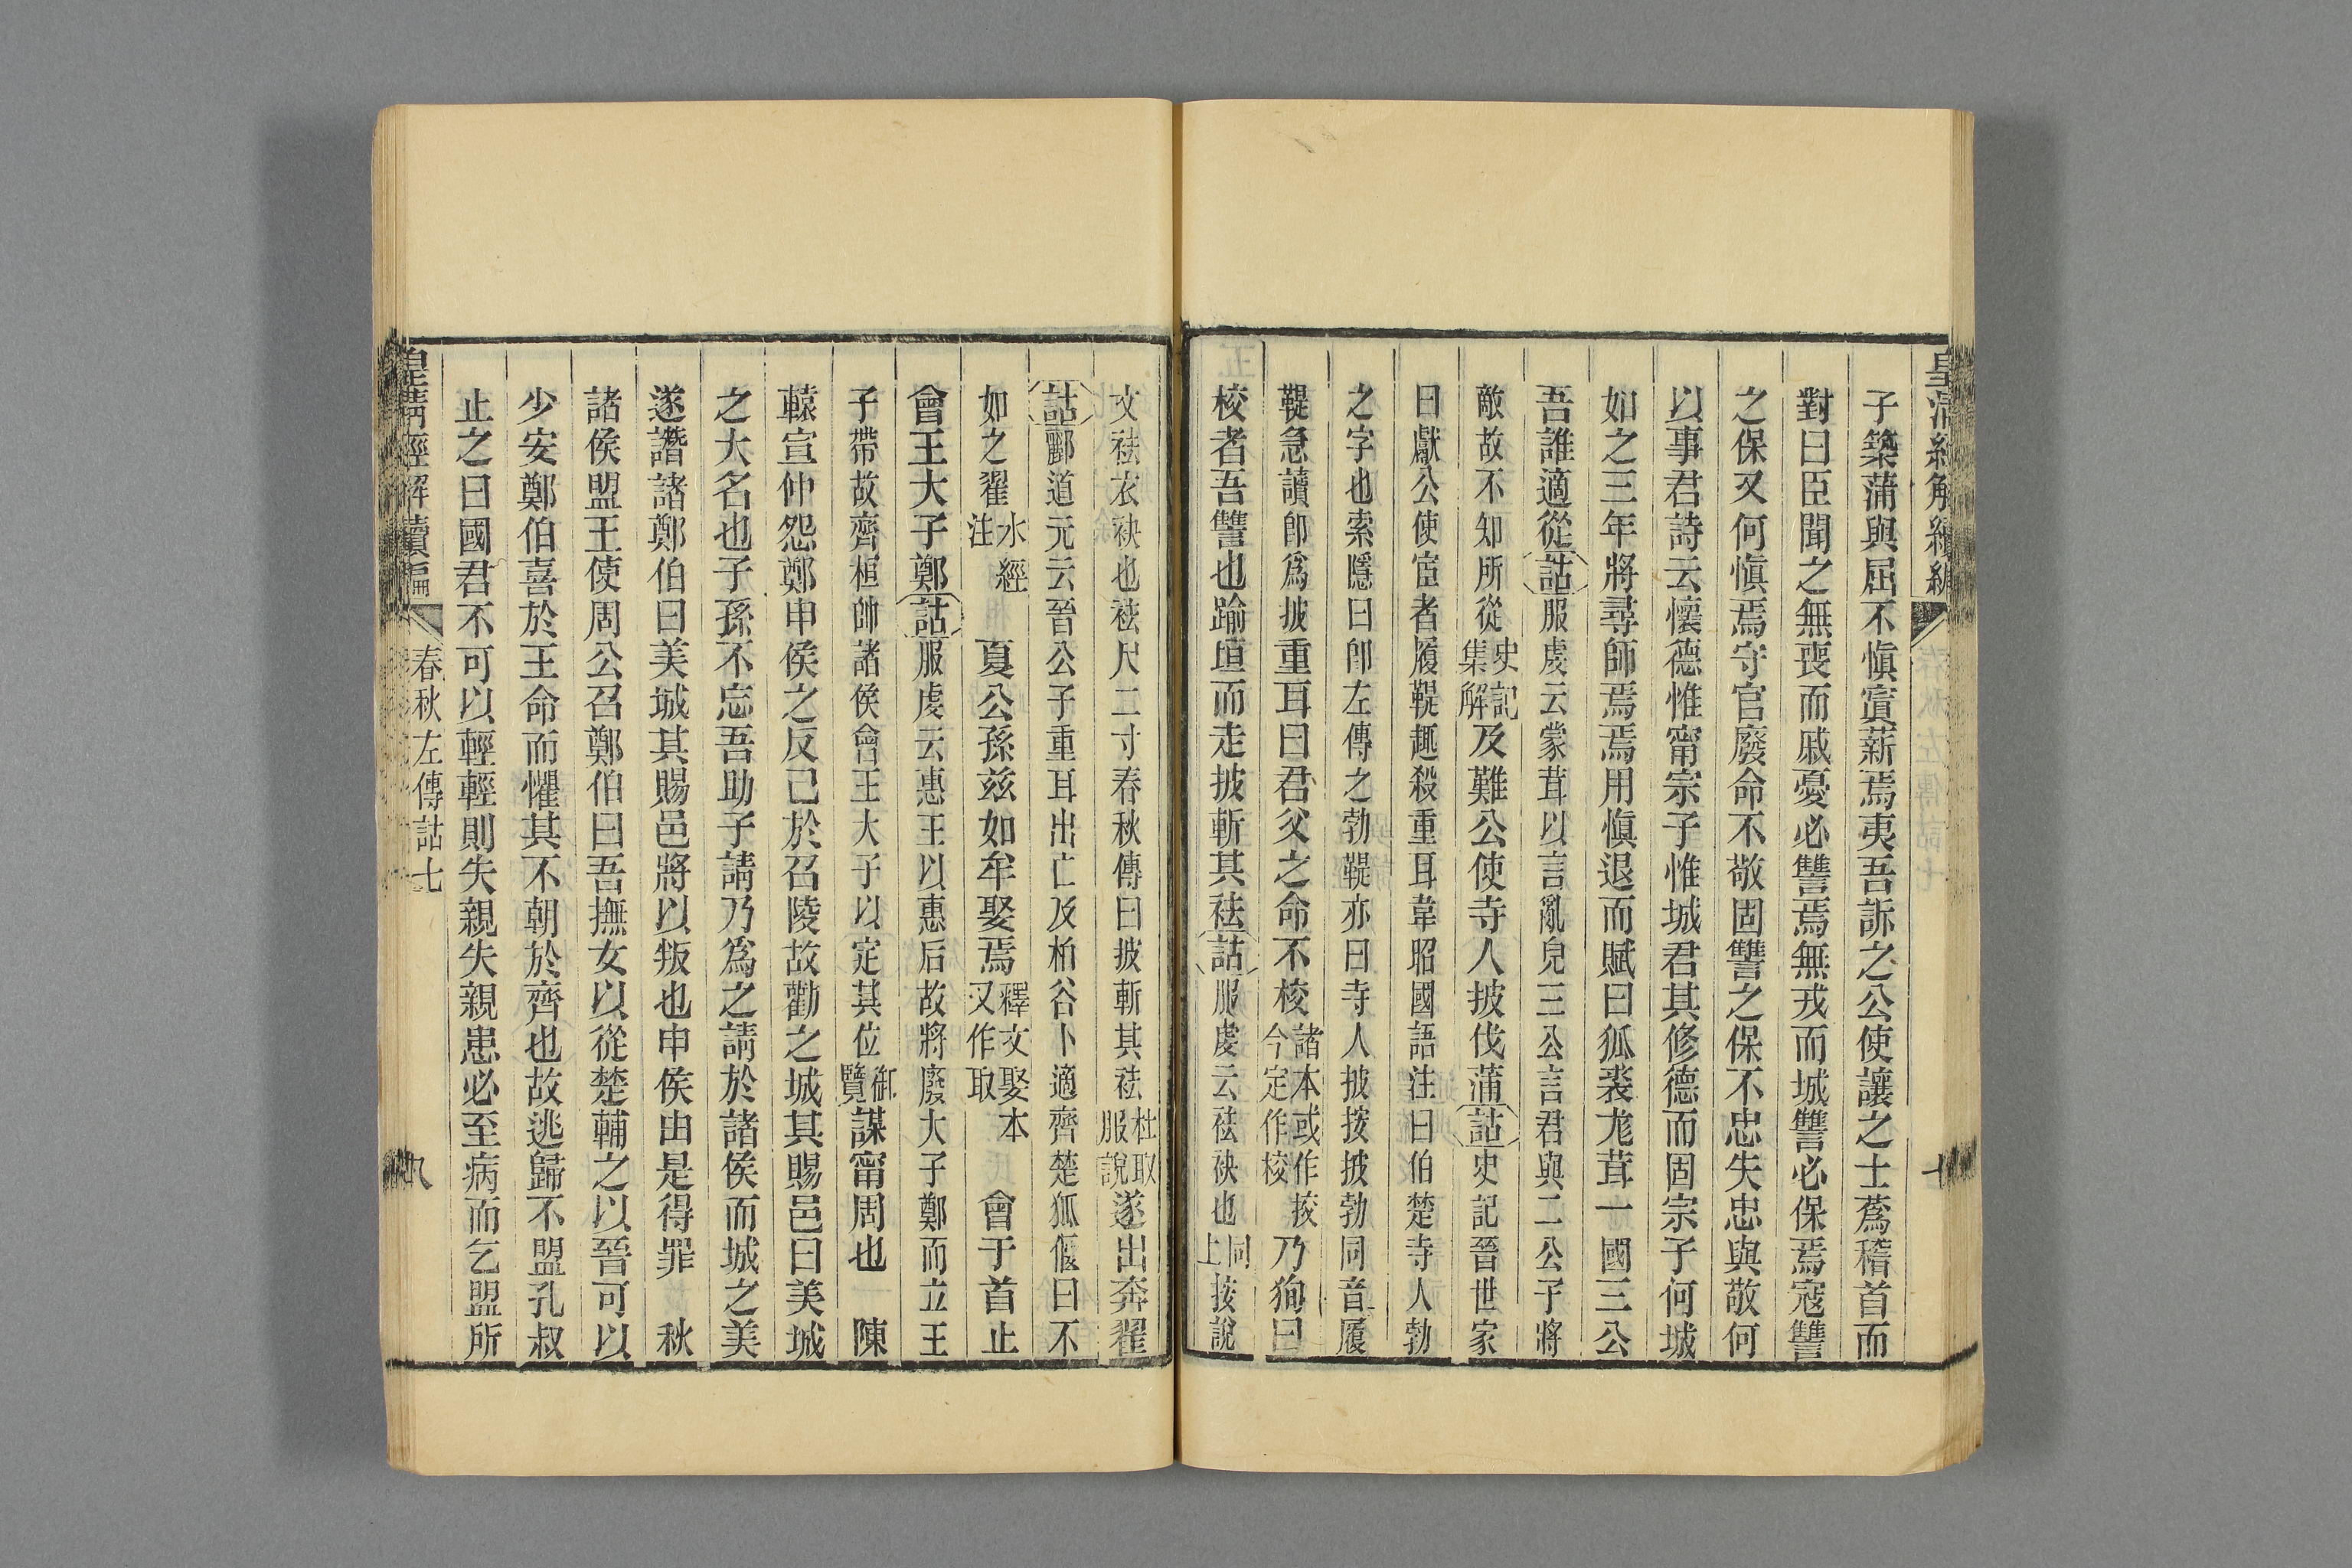 皇清經解續編
子築蒲與屈不慎寘薪焉夷吾訴之公使讓之士蔿稽首而
對曰臣聞之無喪而慼憂必讐焉無戎而城讐必保焉寇讐
之保又何慎焉守官廢命不敬固讐之保不忠失忠與敬何
以事君詩云懷德惟甯宗子惟城君其修德而固宗子何城
如之三年將尋師焉焉用慎退而賦曰狐裘尨茸一國三公
吾誰適從詁服虔云蒙茸以言亂皃三公言君與二公子將
敵故不知所從史記集解及難公使寺人披伐蒲詁史記晉世家
曰獻公使宦者履鞮趣殺重耳韋昭國語注曰伯楚寺人勃
之字也索隱曰卽左傳之勃鞮亦曰寺人披按披勃同音履
鞮急讀卽爲披重耳曰君父之命不校諸本或作挍今定作校乃狥曰
校者吾讐也踰垣而走披斬其袪詁服虔云袪袂也同上按說
文袪衣袂也袪尺二寸春秋傳曰披斬其袪杜取服說遂出奔翟
詁酈道元云晉公子重耳出亡及柏谷卜適齊楚狐偃曰不
如之翟水經注 夏公孫兹如牟娶焉釋文娶本又作取 會于首止
會王大子鄭詁服虔云惠王以惠后故將廢大子鄭而立王
子帶故齊桓帥諸侯會王大子以定其位御覽謀甯周也 陳
轅宣仲怨鄭申侯之反己於召陵故勸之城其賜邑曰美城
之大名也子孫不忘吾助子請乃爲之請於諸侯而城之美
遂譖諸鄭伯曰美城其賜邑將以叛也申侯由是得罪 秋
諸侯盟王使周公召鄭伯曰吾撫女以從楚輔之以晉可以
少安鄭伯喜於王命而懼其不朝於齊也故逃歸不盟孔叔
止之曰國君不可以輕輕則失親失親患必至病而乞盟所
皇清經解續編 春秋左傳詁七 八